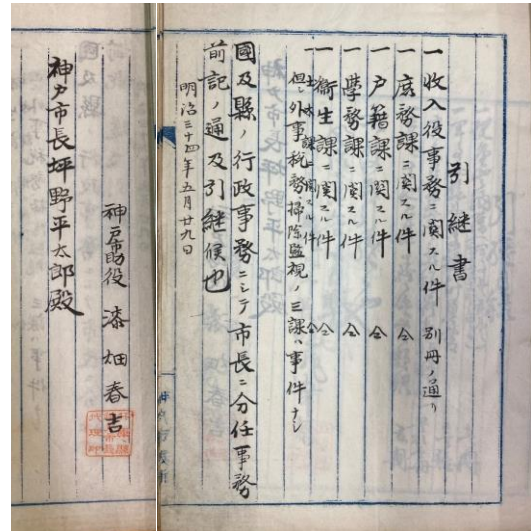 引継書
一 收入役事務ニ関スル件 別冊ノ通リ
一 庶務課ニ関スル件 仝
一 戸籍課ニ関スル件 仝
一 學務課ニ関スル件 仝
一 衛生課ニ関スル件 仝
一 土木課ニ関スル件 仝
但シ外事税務掃除監視ノ三課ハ事件ナシ
國及縣ノ行政事務ニシテ市長ニ分任事務
前記ノ通及引継候也
明治三十四年五月廿九日
神戸市助役 漆畑春吉
神戸市長坪野平太郎殿